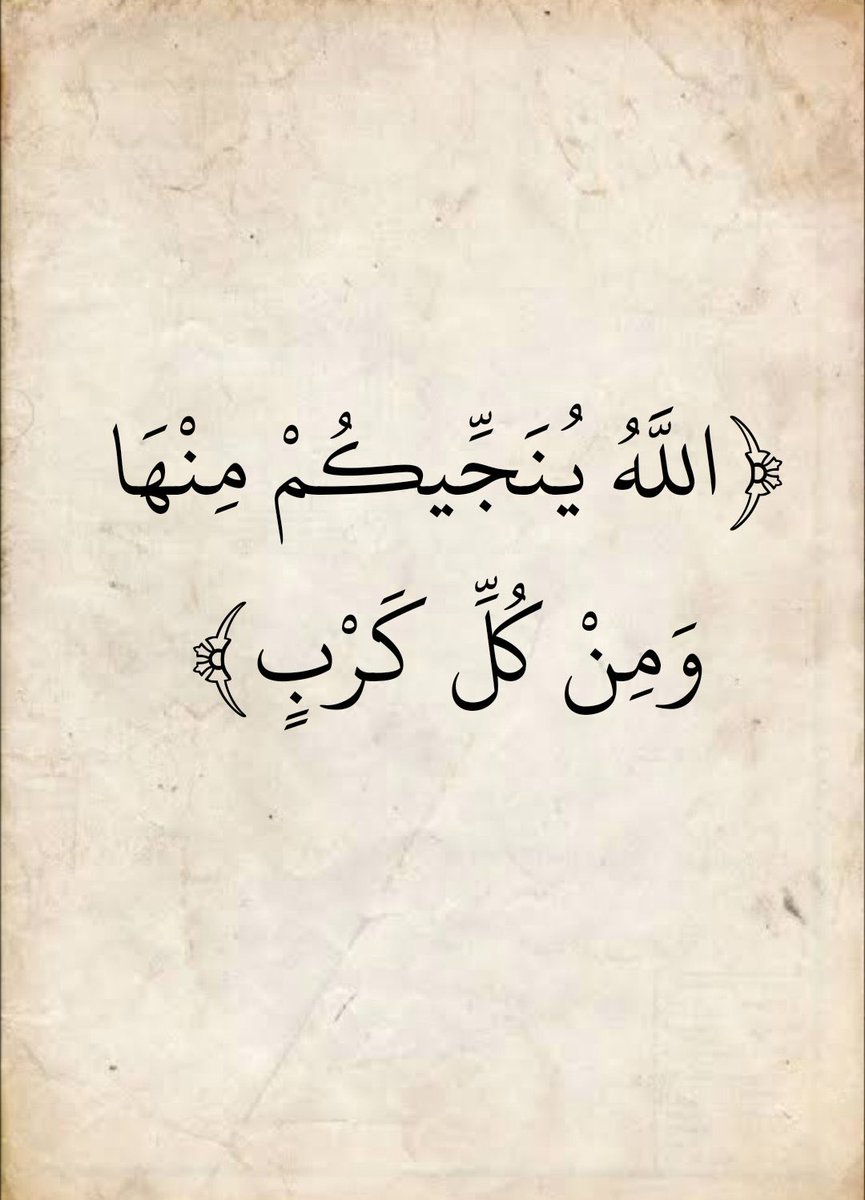 ﴿اللَّهُ يُنَجِّيكُمْ مِنْهَا
وَمِنْ كُلِّ كَرْبٍ﴾